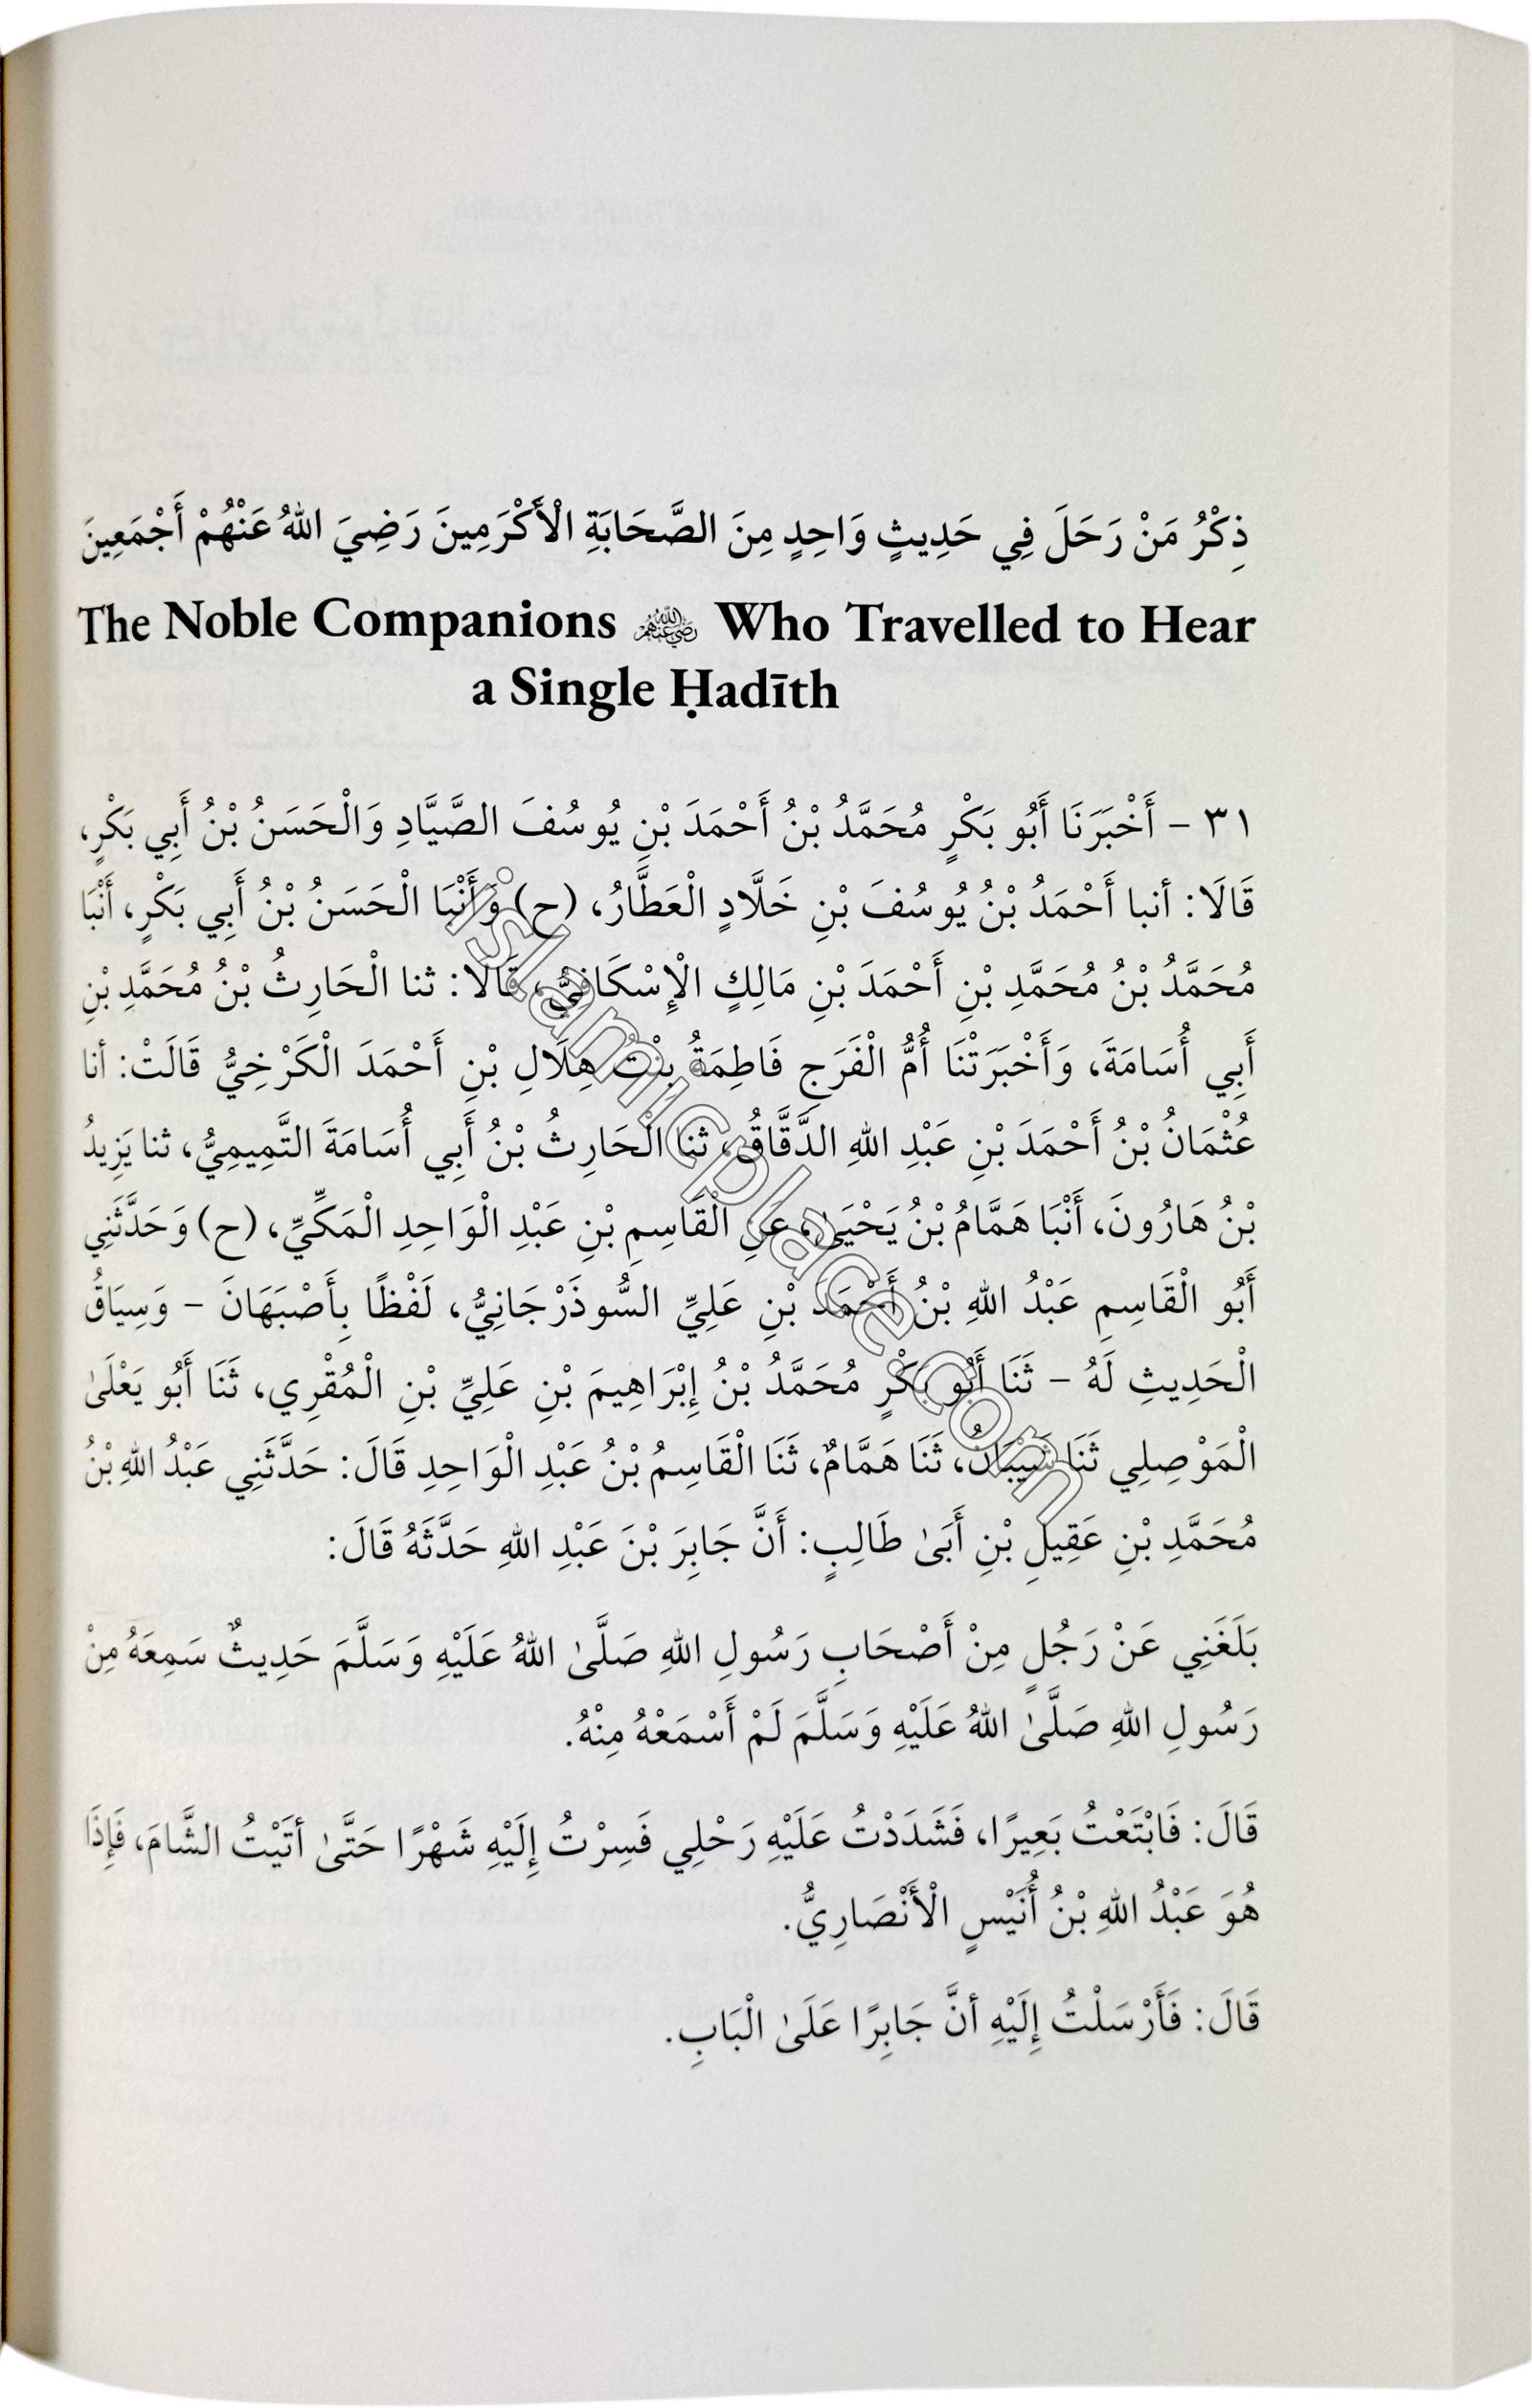 ذِكْرُ مَنْ رَحَلَ فِي حَدِيثٍ وَاحِدٍ مِنَ الصَّحَابَةِ الْأَكْرَمِينَ رَضِيَ اللهُ عَنْهُمْ أَجْمَعِينَ
The Noble Companions رضي الله عنهم Who Travelled to Hear
a Single Ḥadīth
٣١ – أَخْبَرَنَا أَبُو بَكْرٍ مُحَمَّدُ بْنُ أَحْمَدَ بْنِ يُوسُفَ الصَّيَّادِ وَالْحَسَنُ بْنُ أَبِي بَكْرٍ،
قَالَا: أنبا أَحْمَدُ بْنُ يُوسُفَ بْنِ خَلَّادٍ الْعَطَّارُ، (ح) وَأَنْبَا الْحَسَنُ بْنُ أَبِي بَكْرٍ، أَنْبَا
مُحَمَّدُ بْنُ مُحَمَّدِ بْنِ أَحْمَدَ بْنِ مَالِكٍ الْإِسْكَافِيُّ، قَالَا: ثنا الْحَارِثُ بْنُ مُحَمَّدِ بْنِ
أَبِي أُسَامَةَ، وَأَخْبَرَتْنَا أُمُّ الْفَرَجِ فَاطِمَةُ بِنْتُ هِلَالِ بْنِ أَحْمَدَ الْكَرْخِيُّ قَالَتْ: أنا
عُثْمَانُ بْنُ أَحْمَدَ بْنِ عَبْدِ اللهِ الدَّقَّاقُ، ثنا الْحَارِثُ بْنُ أَبِي أُسَامَةَ التَّمِيمِيُّ، ثنا يَزِيدُ
بْنُ هَارُونَ، أَنْبَا هَمَّامُ بْنُ يَحْيَىٰ، عَنِ الْقَاسِمِ بْنِ عَبْدِ الْوَاحِدِ الْمَكِّيِّ، (ح) وَحَدَّثَنِي
أَبُو الْقَاسِمِ عَبْدُ اللهِ بْنُ أَحْمَدَ بْنِ عَلِيٍّ السُّوذَرْجَانِيُّ، لَفْظًا بِأَصْبَهَانَ – وَسِيَاقُ
الْحَدِيثِ لَهُ – ثَنَا أَبُو بَكْرٍ مُحَمَّدُ بْنُ إِبْرَاهِيمَ بْنِ عَلِيِّ بْنِ الْمُقْرِي، ثَنَا أَبُو يَعْلَىٰ
الْمَوْصِلِي ثَنَا شَيْبَانُ، ثَنَا هَمَّامٌ، ثَنَا الْقَاسِمُ بْنُ عَبْدِ الْوَاحِدِ قَالَ: حَدَّثَنِي عَبْدُ اللهِ بْنُ
مُحَمَّدِ بْنِ عَقِيلِ بْنِ أَبَىٰ طَالِبٍ: أَنَّ جَابِرَ بْنَ عَبْدِ اللهِ حَدَّثَهُ قَالَ:
بَلَغَنِي عَنْ رَجُلٍ مِنْ أَصْحَابِ رَسُولِ اللهِ صَلَّىٰ اللهُ عَلَيْهِ وَسَلَّمَ حَدِيثٌ سَمِعَهُ مِنْ
رَسُولِ اللهِ صَلَّىٰ اللهُ عَلَيْهِ وَسَلَّمَ لَمْ أَسْمَعْهُ مِنْهُ.
قَالَ: فَابْتَعْتُ بَعِيرًا، فَشَدَدْتُ عَلَيْهِ رَحْلِي فَسِرْتُ إِلَيْهِ شَهْرًا حَتَّىٰ أتَيْتُ الشَّامَ، فَإِذَا
هُوَ عَبْدُ اللهِ بْنُ أُنَيْسٍ الْأَنْصَارِيُّ.
قَالَ: فَأَرْسَلْتُ إِلَيْهِ أنَّ جَابِرًا عَلَىٰ الْبَابِ.
islamicplace.com